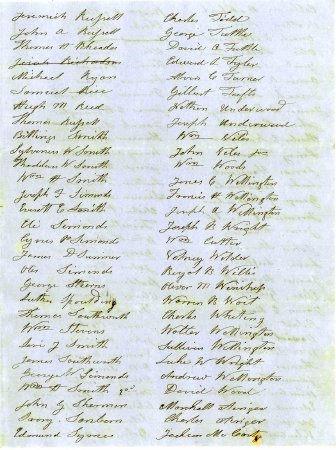 Jeremiah Russell
John A Russell
Thomas H Rhoades
Josiah
Michael Ryan
Somerset Rice
Hugh M Reed
Thomas Russell
Billings Smith
Sylvanus W Smith
Thaddeus W Smith
Wm H Smith
Joseph F Simonds
Everett C Smith
Eli Simonds
Cyrus Simonds
James D Sumner
Otis Simonds
George Stearns
Luther Spaulding
Thomas Southworth
Wm Stevens
Levi J Smith
James Southworth
George W Simonds
Wm D Smith 2d
John G Sherman
Sanborn
Edmund Symes
Charles Tidd
George Tuttle
David A Tuttle
Edward L Tyler
C Turner
Gilbert
Nathan Underwood
Joseph Underwood
Wm Viles
John Viles Jr
Wm Woods
Jones C Wellington
H Wellington
Joseph A Wellington
Joseph B Wright
Wm Cutter
Sidney Wilder
Royal B Willis
Oliver M Winship
Warren B Wait
Charles Whiting
Walter Wellington
Sullivan Wellington
Luke W Wright
Andrew Wellington
David Wood
Marshall
Charles
Jackson